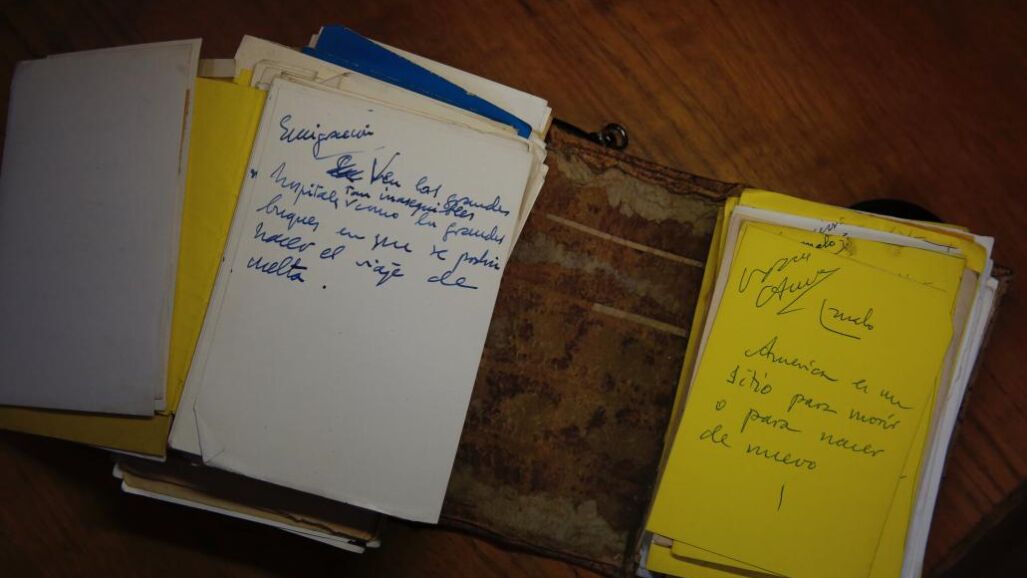 Emigración
Ven los grandes
tan inasequibles
hospitales como los grandes
buques en que se podría
hacer el viaje de
vuelta.
malo
América es un
sitio para morir
o para nacer
de nuevo